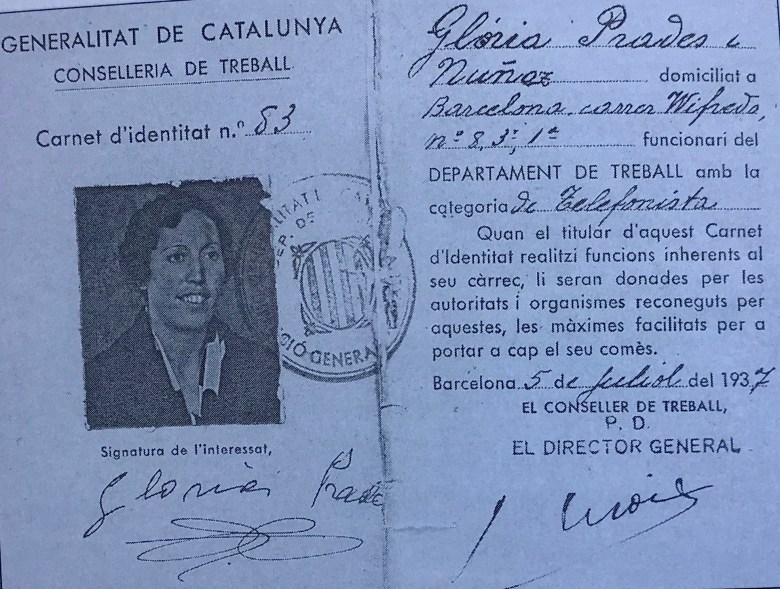 GENERALITAT DE CATALUNYA
CONSELLERIA DE TREBALL
Carnet d'identitat n.º 83
Signatura de l'interessat,
Gloria Prades
Glória Prades i
Nuñez domiciliat a
Barcelona, carrer Wifredo,
nº 8, 3º, 1ª funcionari del
DEPARTAMENT DE TREBALL amb la
categoria de Telefonista
Quan el titular d'aquest Carnet
d'Identitat realitzi funcions inherents al
seu càrrec, li seran donades per les
autoritats i organismes reconeguts per
aquestes, les màximes facilitats per a
portar a cap el seu comès.
Barcelona 5 de juliol del 1937
EL CONSELLER DE TREBALL,
P. D.
EL DIRECTOR GENERAL